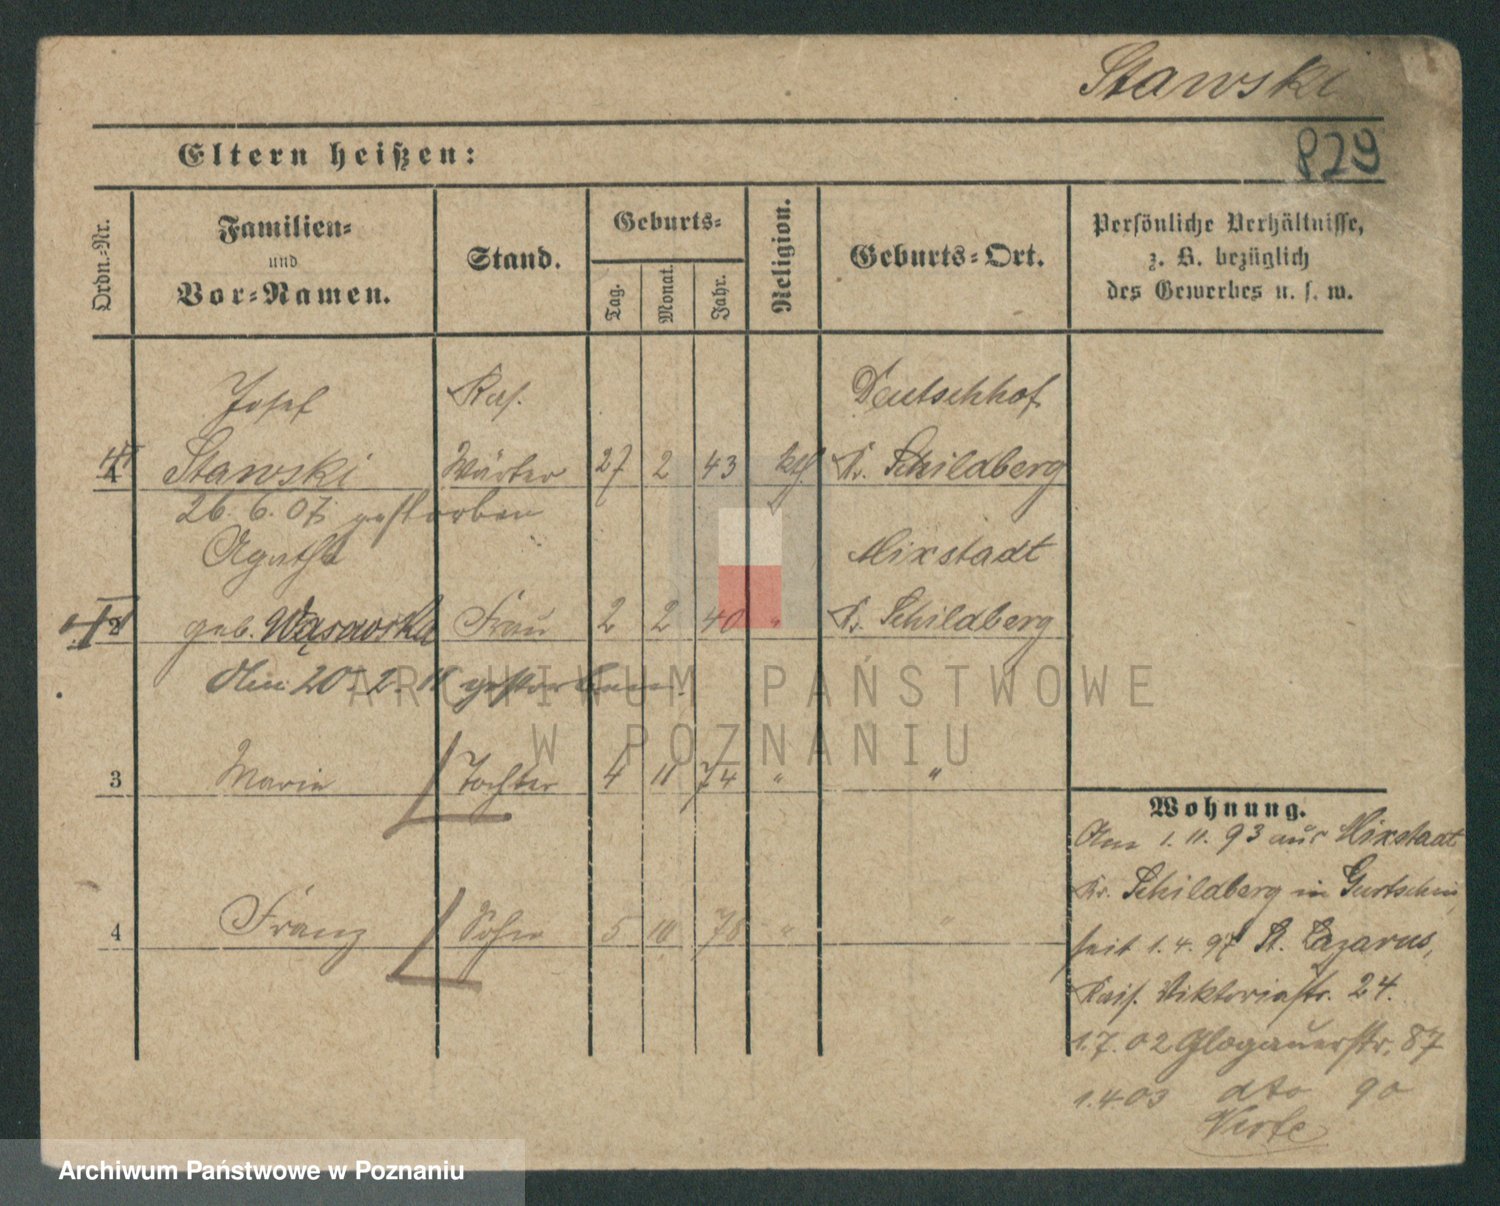 Stawski
829
Eltern heißen:
Ordn.-Nr.
Familien-
und
Vor-Namen.
Stand.
Geburts-
Tag.
Monat.
Jahr.
Religion.
Geburts-Ort.
Persönliche Verhältnisse,
z. B. bezüglich
des Gewerbes u. s. w.
Josef
Deutschhof
1 Stawski Wärter 27 2 43 Kr. Schildberg
26. 6. 07 gestorben
Agatha
Mixstadt
2 geb. Wąsawska Frau 2 2 40 " Kr. Schildberg
Am 20. 2. 11 gestorben.
3 Marie Tochter 4 11 74 " "
4 Franz Sohn 5 10 78 " "
Wohnung.
Am 1. 11. 93 aus Mixstadt
Kr. Schildberg in Gurtschin
seit 1. 4. 97 St. Lazarus,
Kais. Viktoriastr. 24.
1. 7. 02 Glogauerstr. 87
1. 4. 03 dto 90
ARCHIWUM PAŃSTWOWE
W POZNANIU
Archiwum Państwowe w Poznaniu